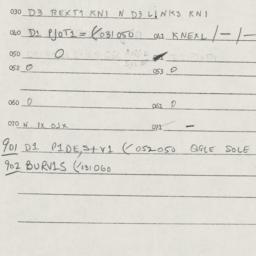 030 D3 REXT1 KN1 N D3 LINKS KN1
040 D1 PJOT1 = (/031050 041 KNEXL /-/-
050 0
052 0 053 0
060 0 061 0
070 N IX OJK 071 -
901 D1 P1DE,S++V1 (/052050 QGLE SOLE
902 BURV1S (/131060